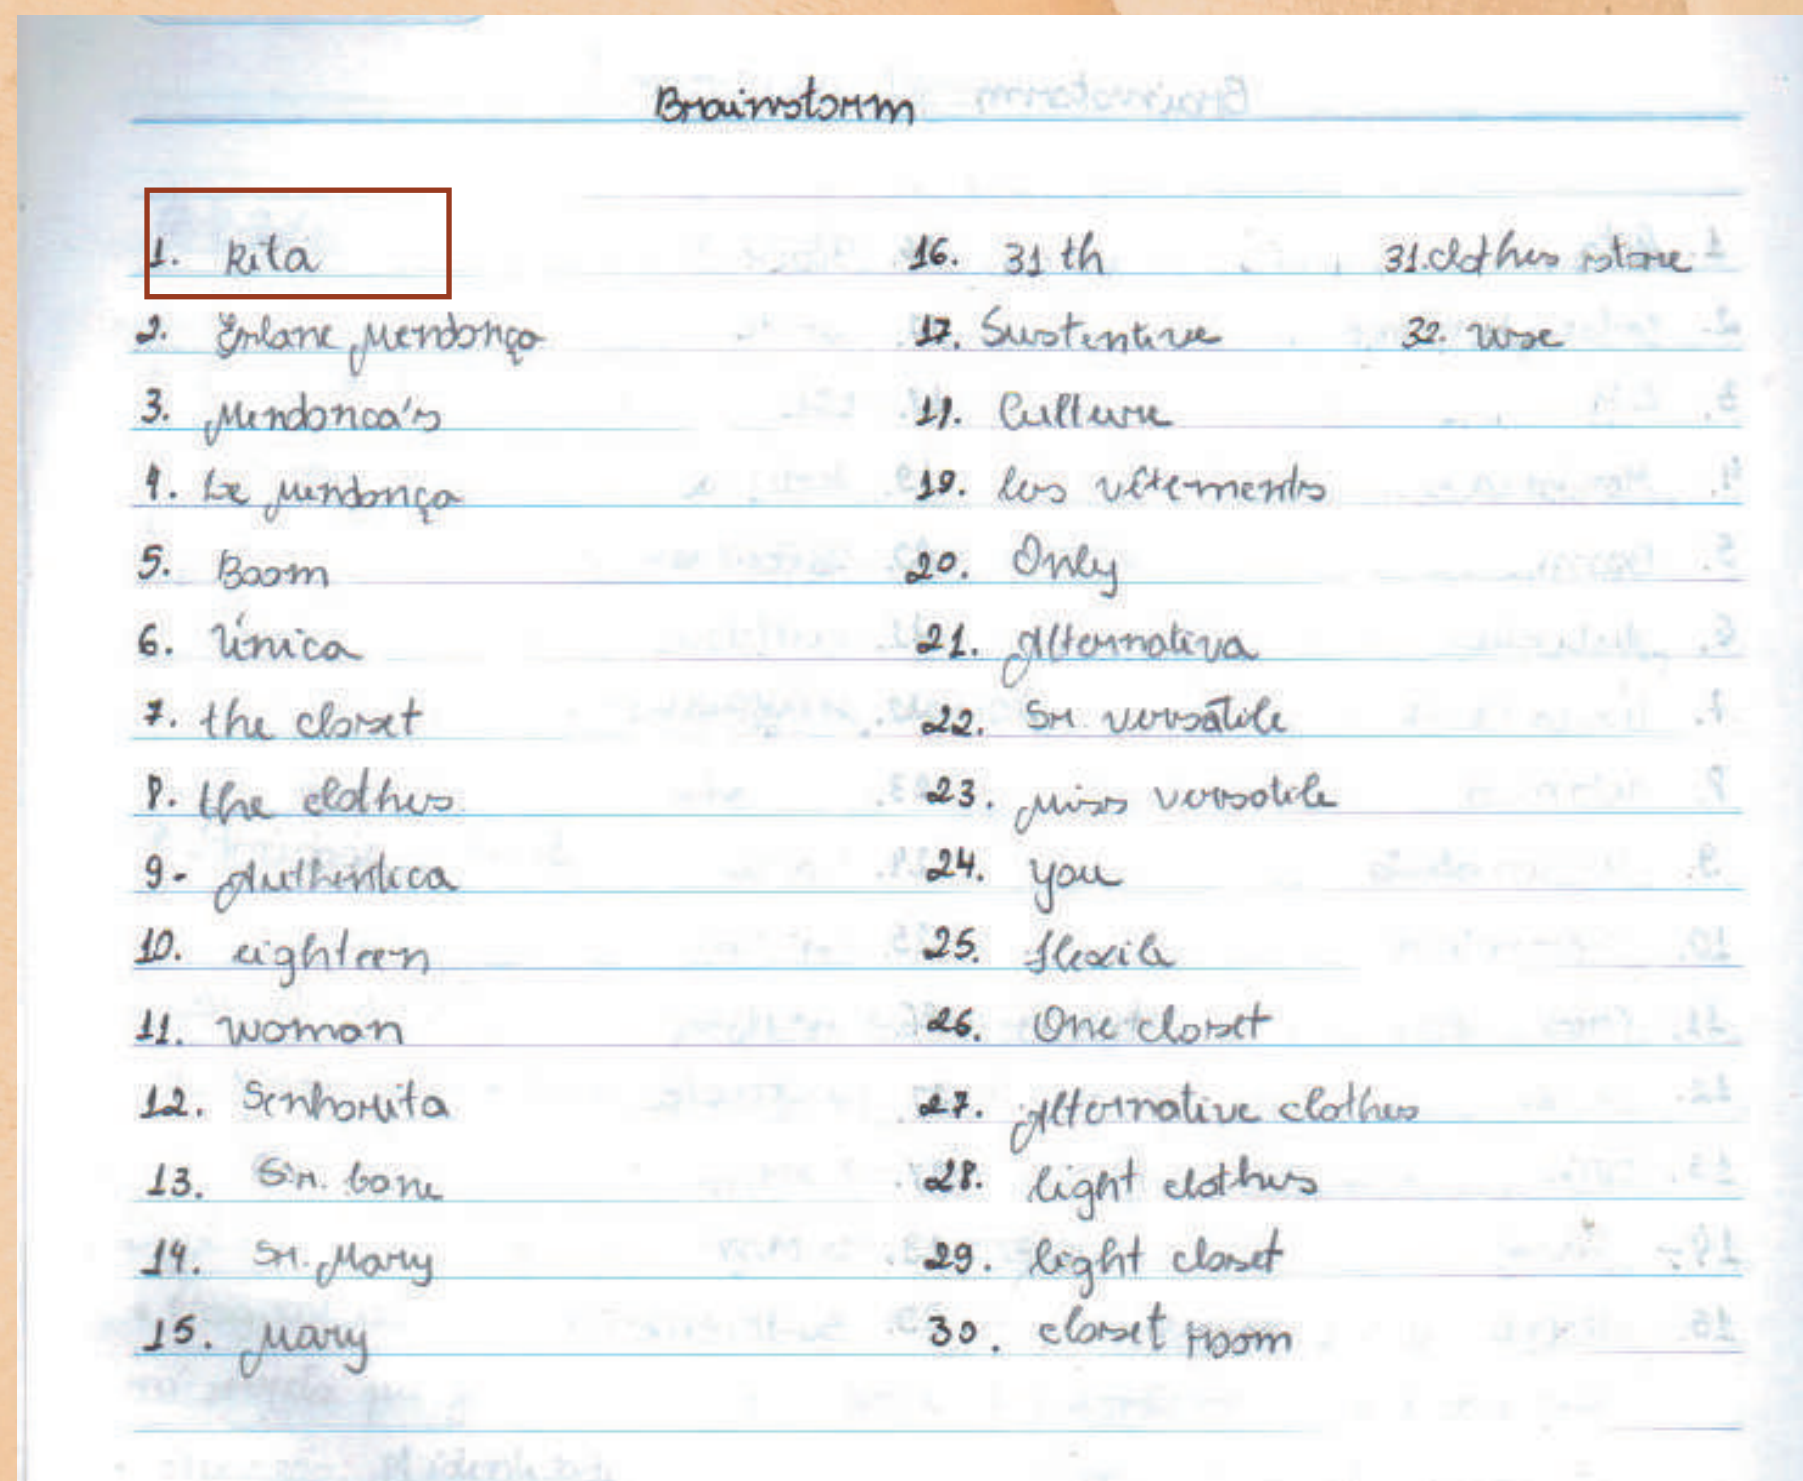 Brainstorm
1. Rita
2. Erlane Mendonça
3. Mendonca's
4. Le Mendonça
5. Boom
6. Única
7. the closet
8. the clothes
9- Authentica
10. eighteen
11. woman
12. Senhorita
13. Sr. bone
14. Sr. Mary
15. Mary
16. 31 th
17. Sustentive
18. Culture
19. les vêtements
20. Only
21. Alternativa
22. Sr. versátile
23. Miss versatile
24. you
25. flexile
26. One closet
27. Alternative clothes
28. light clothes
29. light closet
30. closet room
31. clothes store
32. use